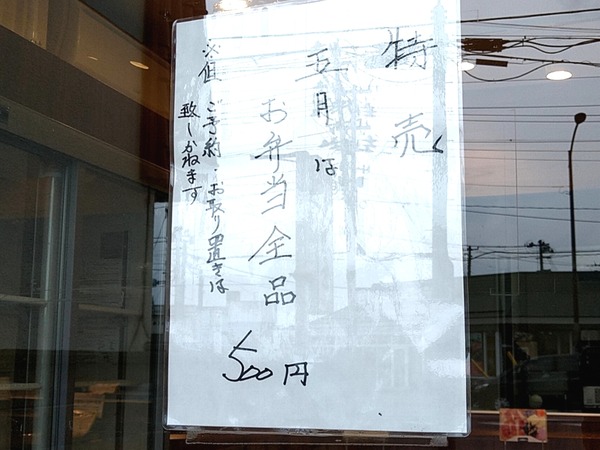 特売
五月は
お弁当全品
500円
※但ご予約・お取り置きは
致しかねます